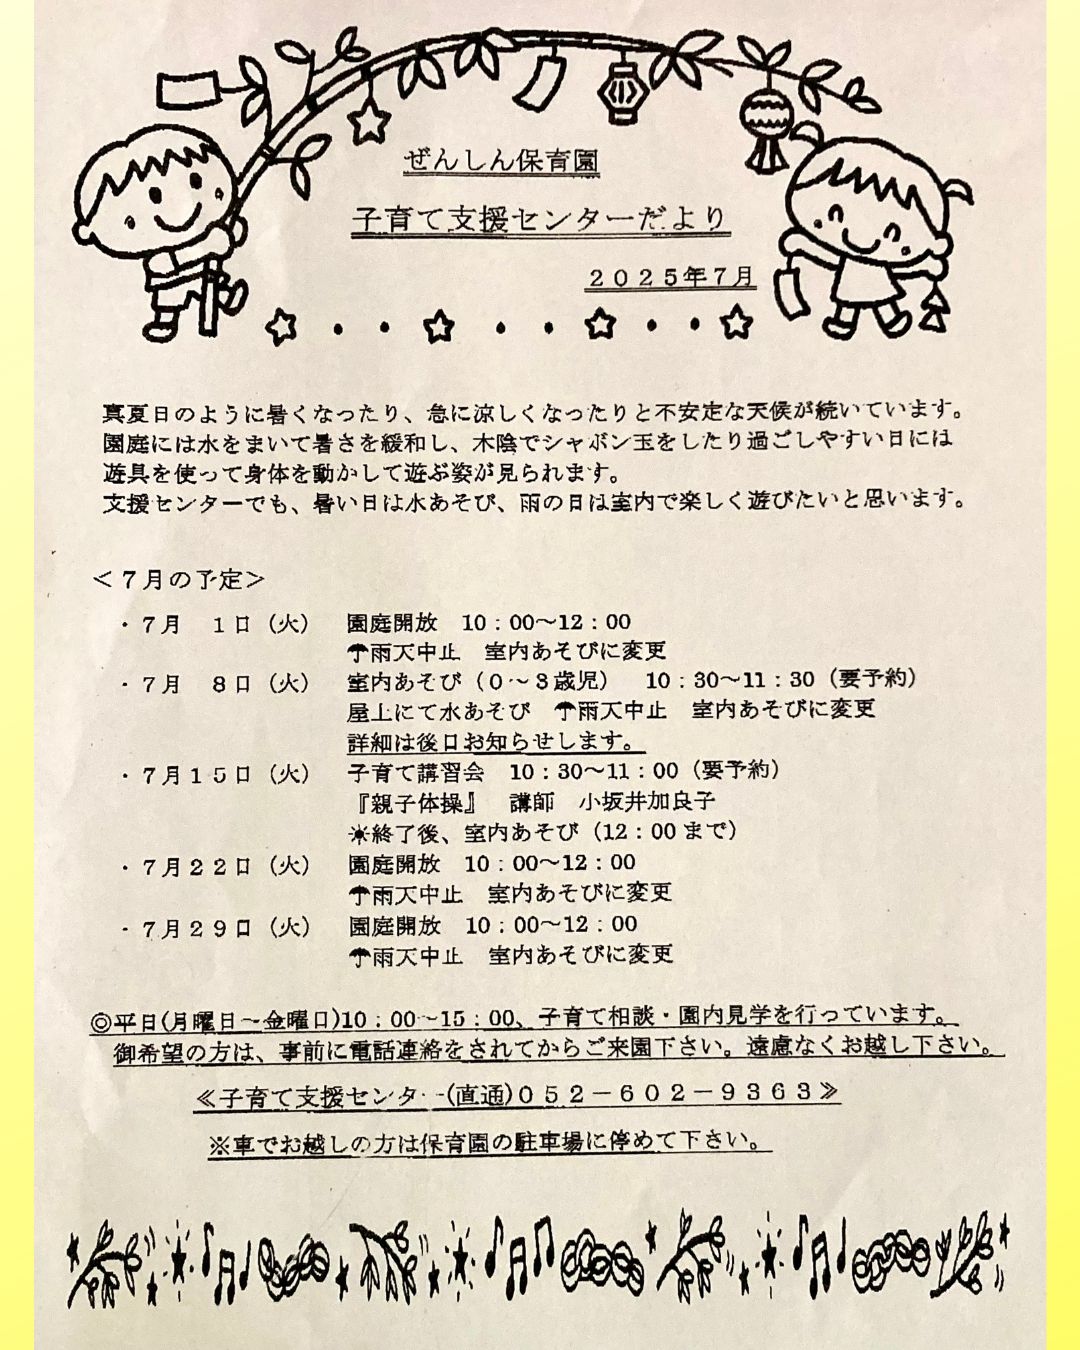 ぜんしん保育園
子育て支援センターだより
2025年7月
真夏日のように暑くなったり、急に涼しくなったりと不安定な天候が続いています。
園庭には水をまいて暑さを緩和し、木陰でシャボン玉をしたり過ごしやすい日には
遊具を使って身体を動かして遊ぶ姿が見られます。
支援センターでも、暑い日は水あそび、雨の日は室内で楽しく遊びたいと思います。
＜7月の予定＞
・7月　1日（火）　園庭開放　10：00～12：00
☂雨天中止　室内あそびに変更
・7月　8日（火）　室内あそび（0～3歳児）　10：30～11：30（要予約）
屋上にて水あそび　☂雨天中止　室内あそびに変更
詳細は後日お知らせします。
・7月15日（火）　子育て講習会　10：30～11：00（要予約）
『親子体操』　講師　小坂井加良子
☀終了後、室内あそび（12：00まで）
・7月22日（火）　園庭開放　10：00～12：00
☂雨天中止　室内あそびに変更
・7月29日（火）　園庭開放　10：00～12：00
☂雨天中止　室内あそびに変更
◎平日(月曜日～金曜日)10：00～15：00、子育て相談・園内見学を行っています。
御希望の方は、事前に電話連絡をされてからご来園下さい。遠慮なくお越し下さい。
≪子育て支援センター(直通)052－602－9363≫
※車でお越しの方は保育園の駐車場に停めて下さい。